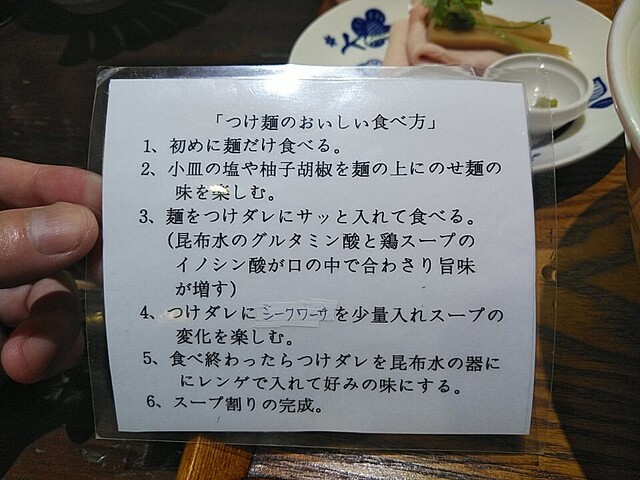 「つけ麺のおいしい食べ方」
1、初めに麺だけ食べる。
2、小皿の塩や柚子胡椒を麺の上にのせ麺の
味を楽しむ。
3、麺をつけダレにサッと入れて食べる。
(昆布水のグルタミン酸と鶏スープの
イノシン酸が口の中で合わさり旨味
が増す)
4、つけダレにシークワーサを少量入れスープの
変化を楽しむ。
5、食べ終わったらつけダレを昆布水の器に
にレンゲで入れて好みの味にする。
6、スープ割りの完成。